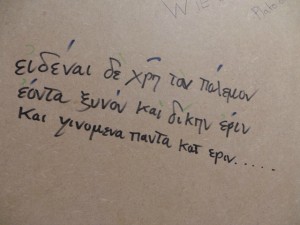 ειδέναι δε χρῆ τον πόλεμον
εόντα ξυνόν και δικην έριν
και γινομενα παντα κατ εριν.....